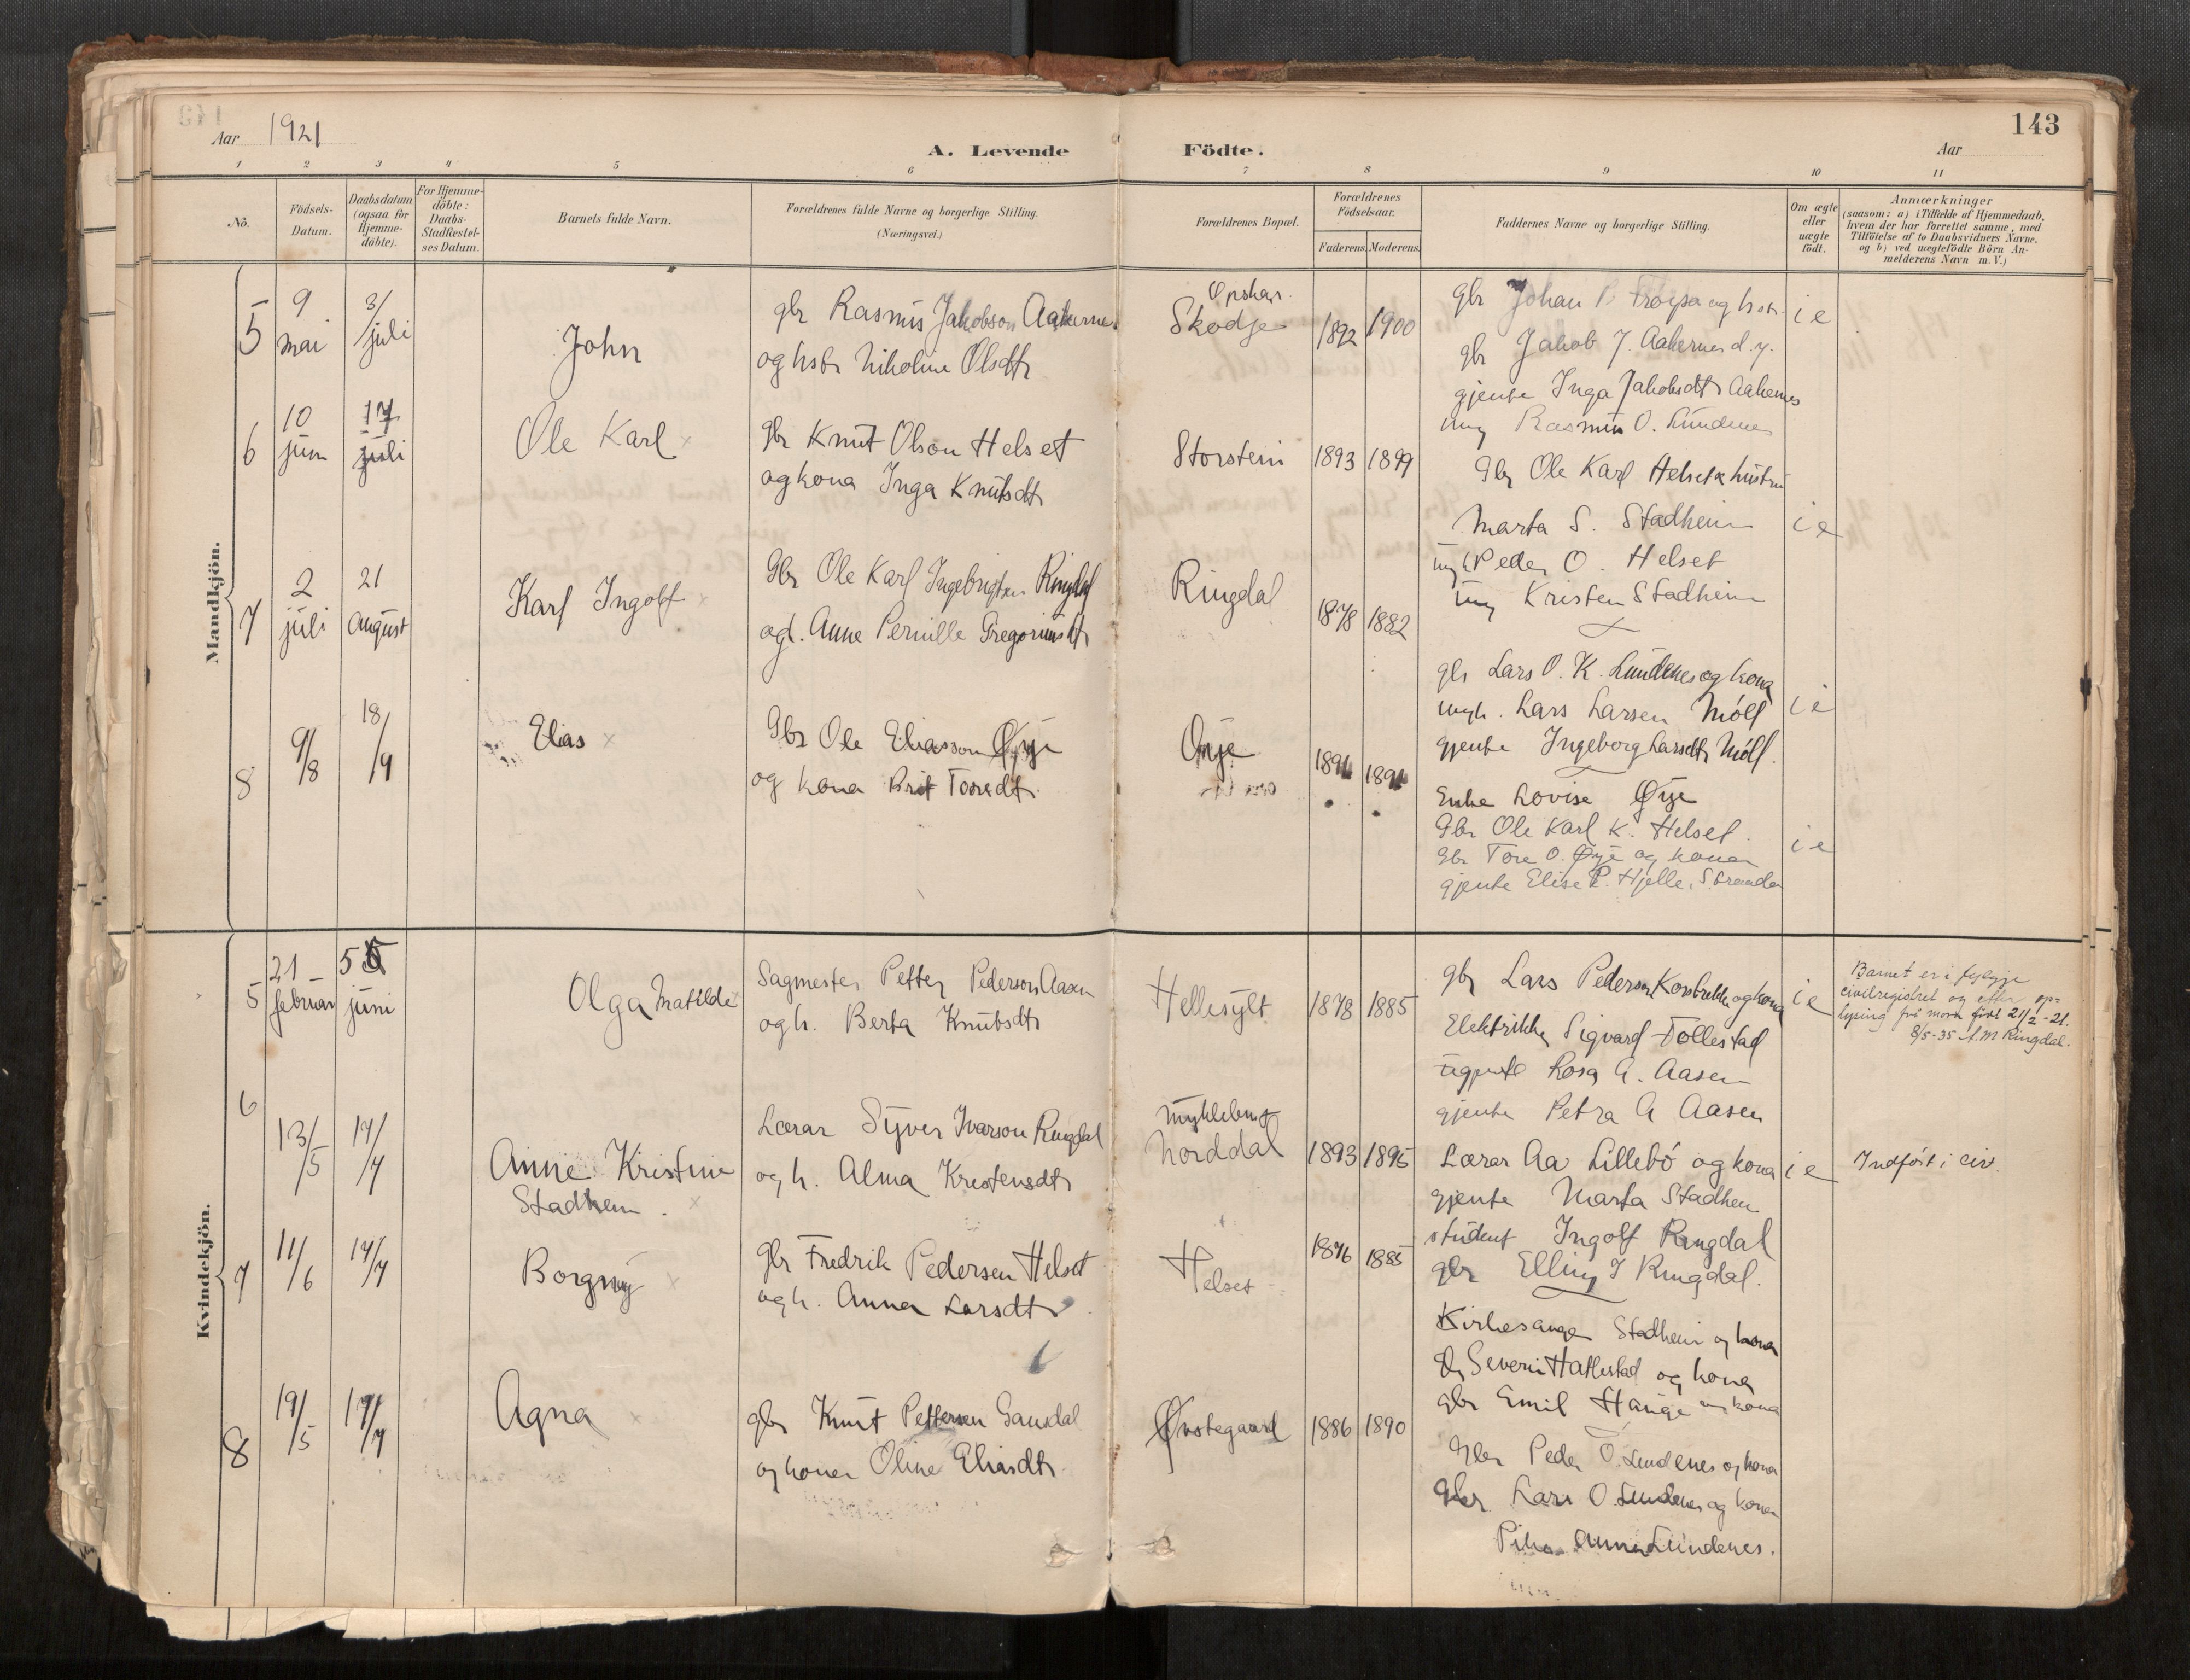 143
Aar 1921
A. Levende Födte.
Aar
1 2 3 4 5 6 7 8 9 10 11
No.
Födsels-
Datum.
Daabsdatum
(ogsaa for
Hjemme-
döbte).
For Hjemme-
döbte:
Daabs-
Stadfæstel-
ses Datum.
Barnets fulde Navn.
Forældrenes fulde Navne og borgerlige Stilling.
(Næringsvei.)
Forældrenes Bopæl.
Forældrenes
Födselsaar.
Faderens. Moderens.
Faddernes Navne og borgerlige Stilling.
Om ægte
eller
uægte
født.
Anmærkninger
(saasom: a) i Tilfælde af Hjemmedaab,
hvem der har forrettet samme, med
Tilføielse af to Daabsvidners Navne,
og b) ved uægtefødte Börn An-
melderens Navn m. V.)
Mandkjön.
5
9
mai
3/
juli
John
gbr Rasmus Jakobson Aakernes
og hstr Nikoline Olsdtr
Opskar.
Skodje
1892 1900
gbr Johan P og hstr.
gbr Jakob J. Aakernes d.y.
gjente Inga Jakobsdtr Aakernes
ung Rasmus O. Lundenes
i e
6
10
juni
17
juli
Ole Karl x
gbr Knut Olson Helset
og kona Inga Knutsdtr
Storstein
1893 1899
Gbr Ole Karl Helset & hustru
Marta S. Stadheim
ungk Peder O. Helset
ung Kristen Stadheim
i e
7
2
juli
21
august
Karl Ingolf x
Gbr Ole Karl Ingebrigtsen Ringdal
og h. Anne Pernille Gregoriusdtr
Ringdal
1878 1882
gbr Lars O. K. Lundenes og kona
ungk. Lars Larsen Möll
gjente Ingeborg Larsdtr Möll.
i e
8
9/8
18/9
Elias x
Gbr Ole Eliasson Øye
og kona Brit Toresdtr.
Øye
1891 1891
Enke Lovise Øye
Gbr Ole Karl K. Helset.
gbr Tore O. Øye og konen
gjente Elise P. Hjelle, Stranden
i e
Kvindekjön.
5
21 -
februar
5
juni
Olga Matilde
Sagmester Petter Pederson Aasen
og h. Berta Knutsdtr
Hellesylt
1878 1885
gbr Lars Pederson Korsbrekke og kona
Elektriker Sigvard Tollestad
Rosa A. Aasen
gjente Petra A Aasen
i e
Barnet er i fylgje
civilregistret og efter op=
lysing frå mora födt 21/2-21.
8/5-35 A.M Ringdal.
6
13/5
17/7
Anne Kristine
Stadheim. x
Lærar Syver Ivarson Ringdal
og h. Alma Kristensdtr
Myklebust
Norddal
1893 1895
Lærar Aa Lillebö og kona
gjente Marta Stadheim
student Ingolf Ringdal
gbr Elling I Ringdal.
i e
Indfört i civ.
7
11/6
17/7
Borgny x
gbr Fredrik Pedersen Helset
og h. Anna Larsdtr
Helset
1876 1885
Kirkesanger Stadheim og kona
gbr Severin Hatlestad og kona
gbr Emil Hauge og kona
8
19/5
17/7
Agna x
gbr Knut Pettersen Gausdal
og konen Oline Eliasdtr
Østegaard
1886 1890
Gbr Peder O. Lundenes og kona
Gbr Lars O. Lundenes og konen
Pike Anna Lundenes.